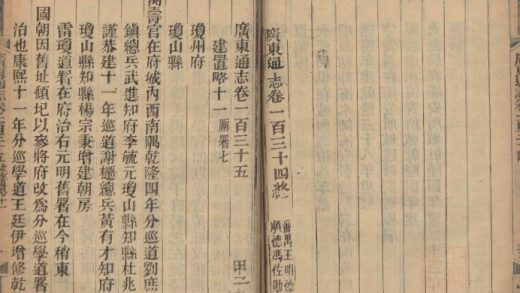 廣東通志卷一百三十四終
番禺王明德
順德馮佐勛
廣東通志卷一百三十五
建置略十一 廨署七
瓊州府
瓊山縣
萬壽宮在府城內西南隅乾隆四年分巡道劉庶
鎮總兵武進知府李毓元瓊山縣知縣杜兆
謹恭建十一年巡道謝櫃總兵黃有才知府
瓊山縣知縣楊宗秉增建朝房
雷瓊道署在府治右元明舊署在今稍東
國朝因舊址頹圮以參將府改為分巡學道署
治也康熙十一年分巡學道王廷伊增修乾